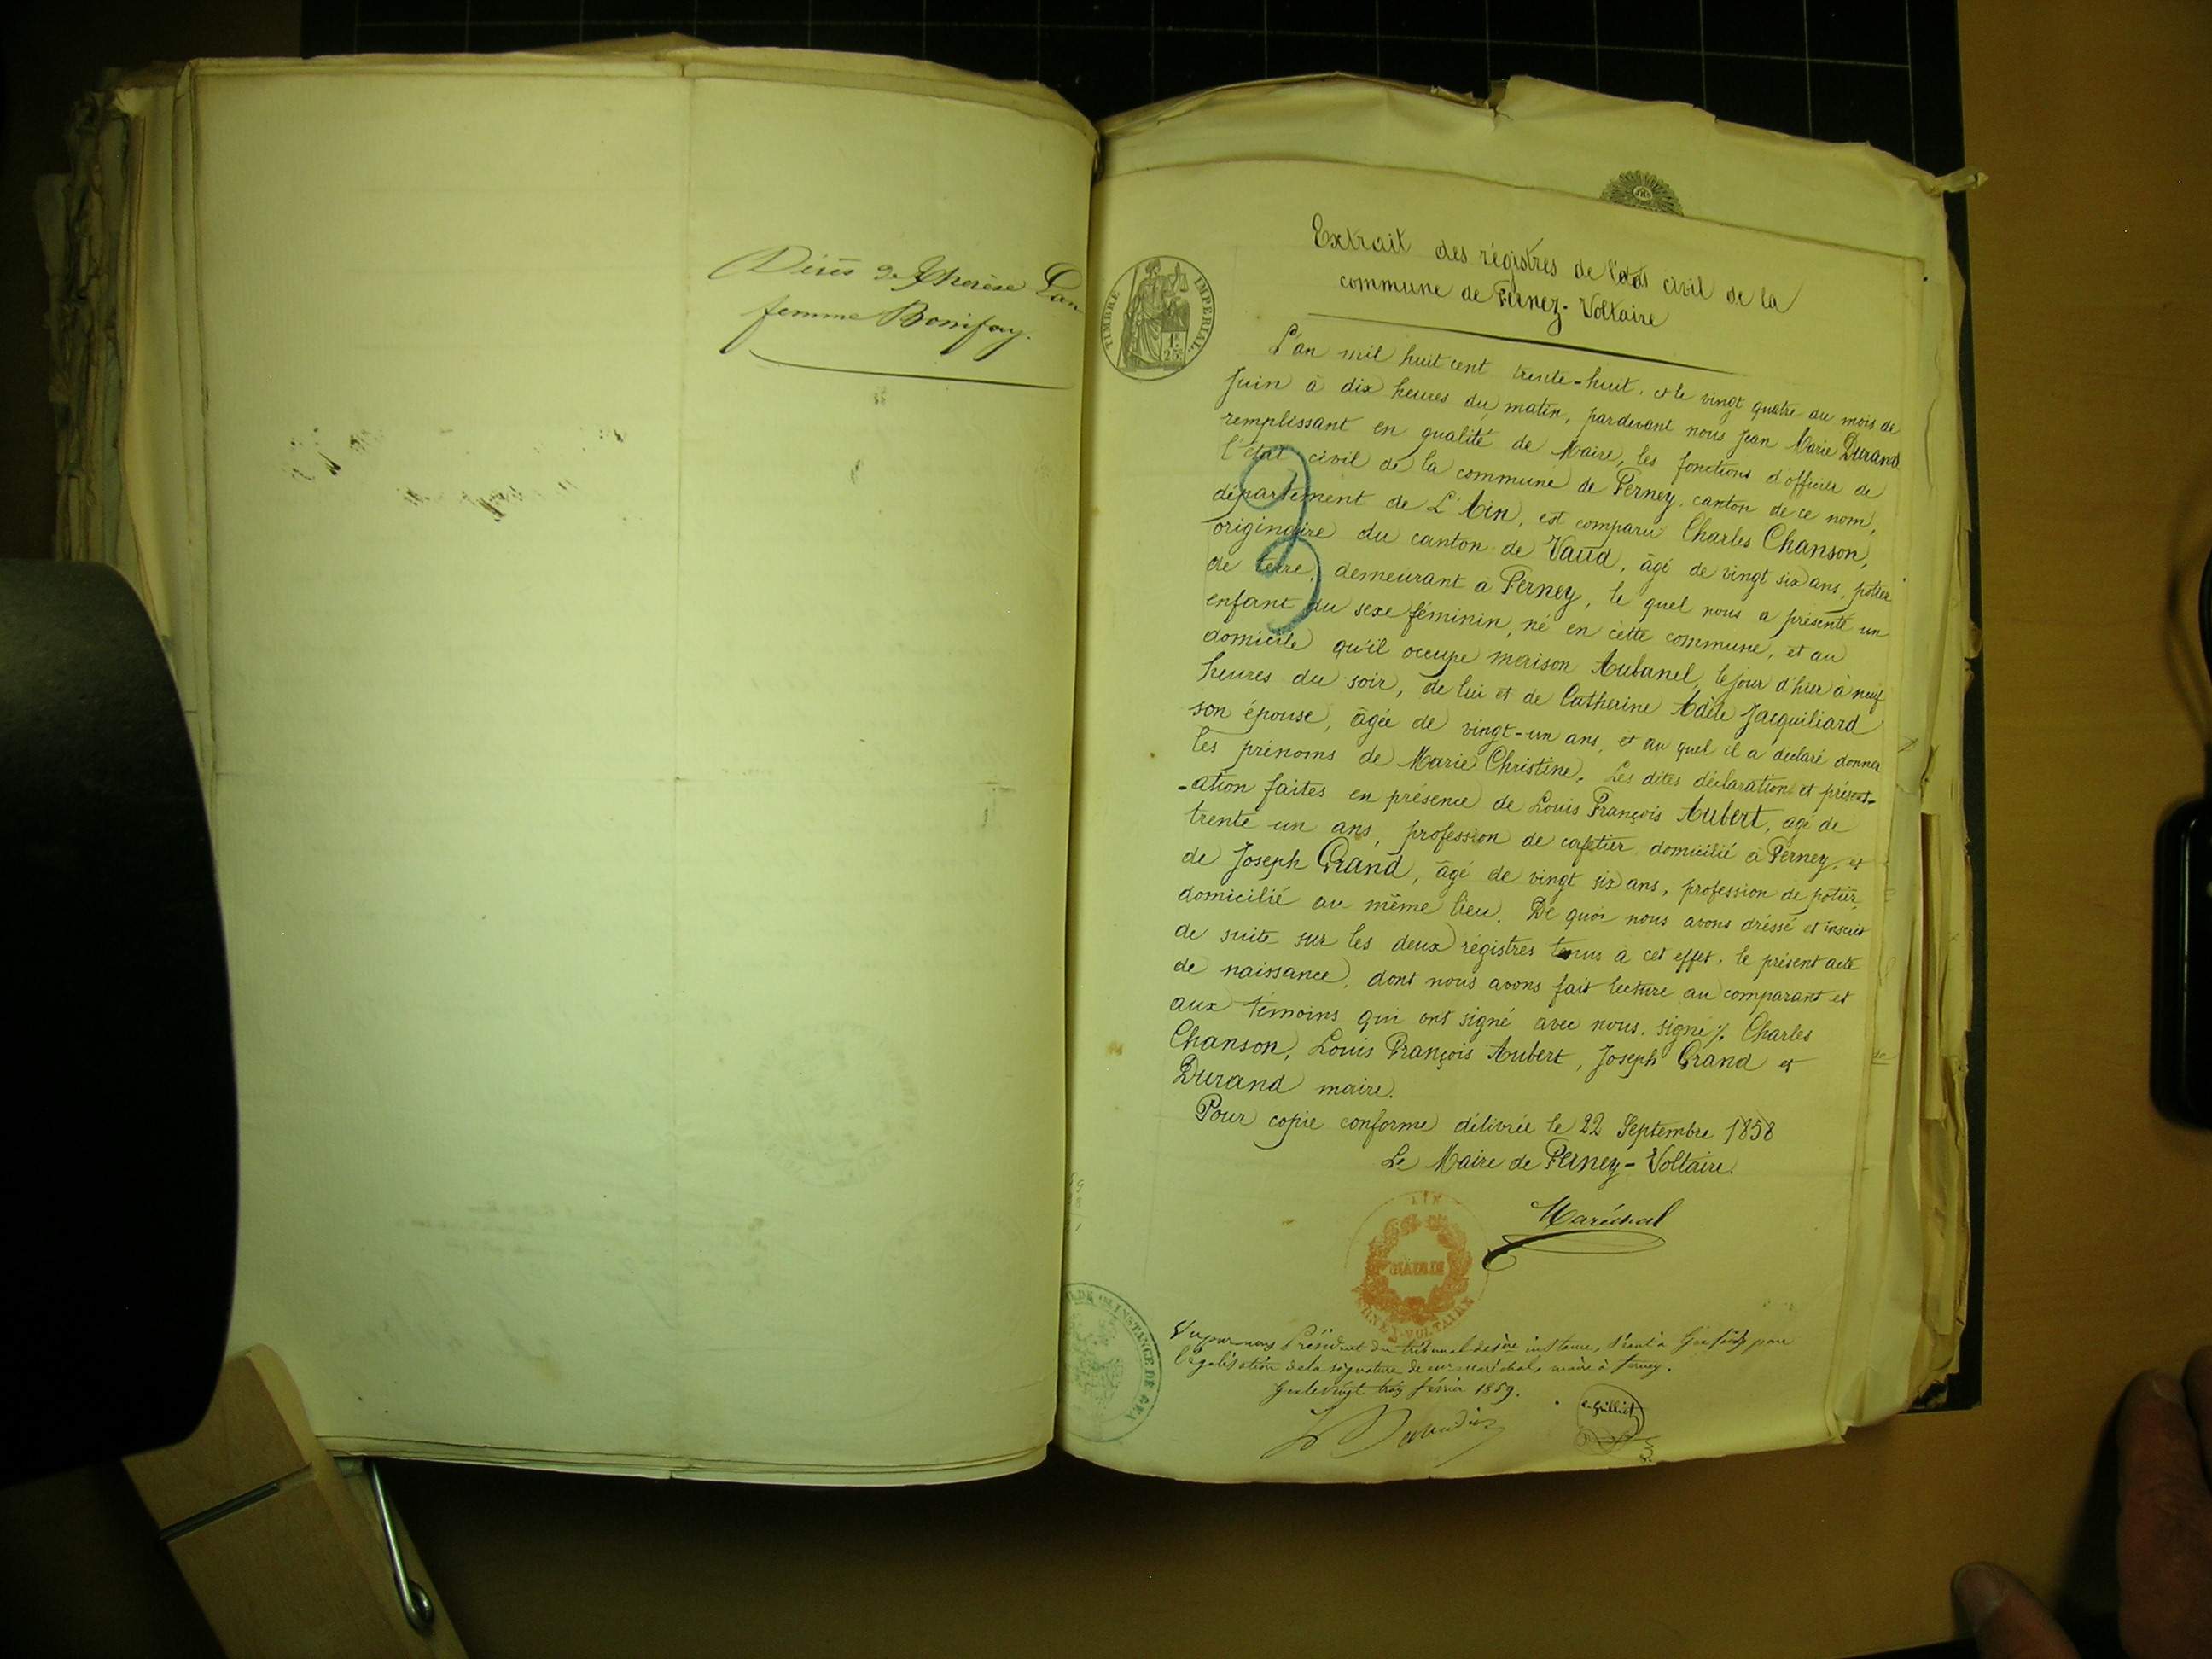 Décès de Thérèse
femme Bonifay.
TIMBRE IMPÉRIAL
1F.
25c.
Extrait des régistres de l'état civil de la
commune de Ferney-Voltaire
L'an mil huit cent trente-huit, et le vingt quatre du mois de
Juin à dix heures du matin, pardevant nous Jean Marie Durand
remplissant en qualité de Maire, les fonctions d'officier de
l'état civil de la commune de Ferney, canton de ce nom,
département de L'Ain, est comparu Charles Chanson,
originaire du canton de Vaud, âgé de vingt six ans, potier
de terre, demeurant à Ferney, le quel nous a présenté un
enfant du sexe féminin, né en cette commune, et au
domicile qu'il occupe maison Aubanel, le jour d'hier à neuf
heures du soir, de lui et de Catherine Adèle Jacquiliard
son épouse, âgée de vingt-un ans, et au quel il a déclaré donner
les prénoms de Marie Christine. Les dites déclaration et présent-
-ation faites en présence de Louis François Aubert, âgé de
trente un ans, profession de cafetier domicilié à Ferney, et
de Joseph Grand, âgé de vingt six ans, profession de potier,
domicilié au même lieu. De quoi nous avons dressé et inscrit
de suite sur les deux régistres tenus à cet effet, le présent acte
de naissance, dont nous avons fait lecture au comparant et
aux témoins qui ont signé avec nous. signé %. Charles
Chanson, Louis François Aubert, Joseph Grand et
Durand maire.
Pour copie conforme délivrée le 22 Septembre 1858
Le Maire de Ferney-Voltaire.
Maréchal
AIN
MAIRIE
FERNEY-VOLTAIRE
INSTANCE DE GEX
Vu par nous Président du tribunal de 1ère instance, séant à Gex pour
légalisation de la signature de mr Maréchal, maire à Ferney.
Gex le vingt trois février 1859.